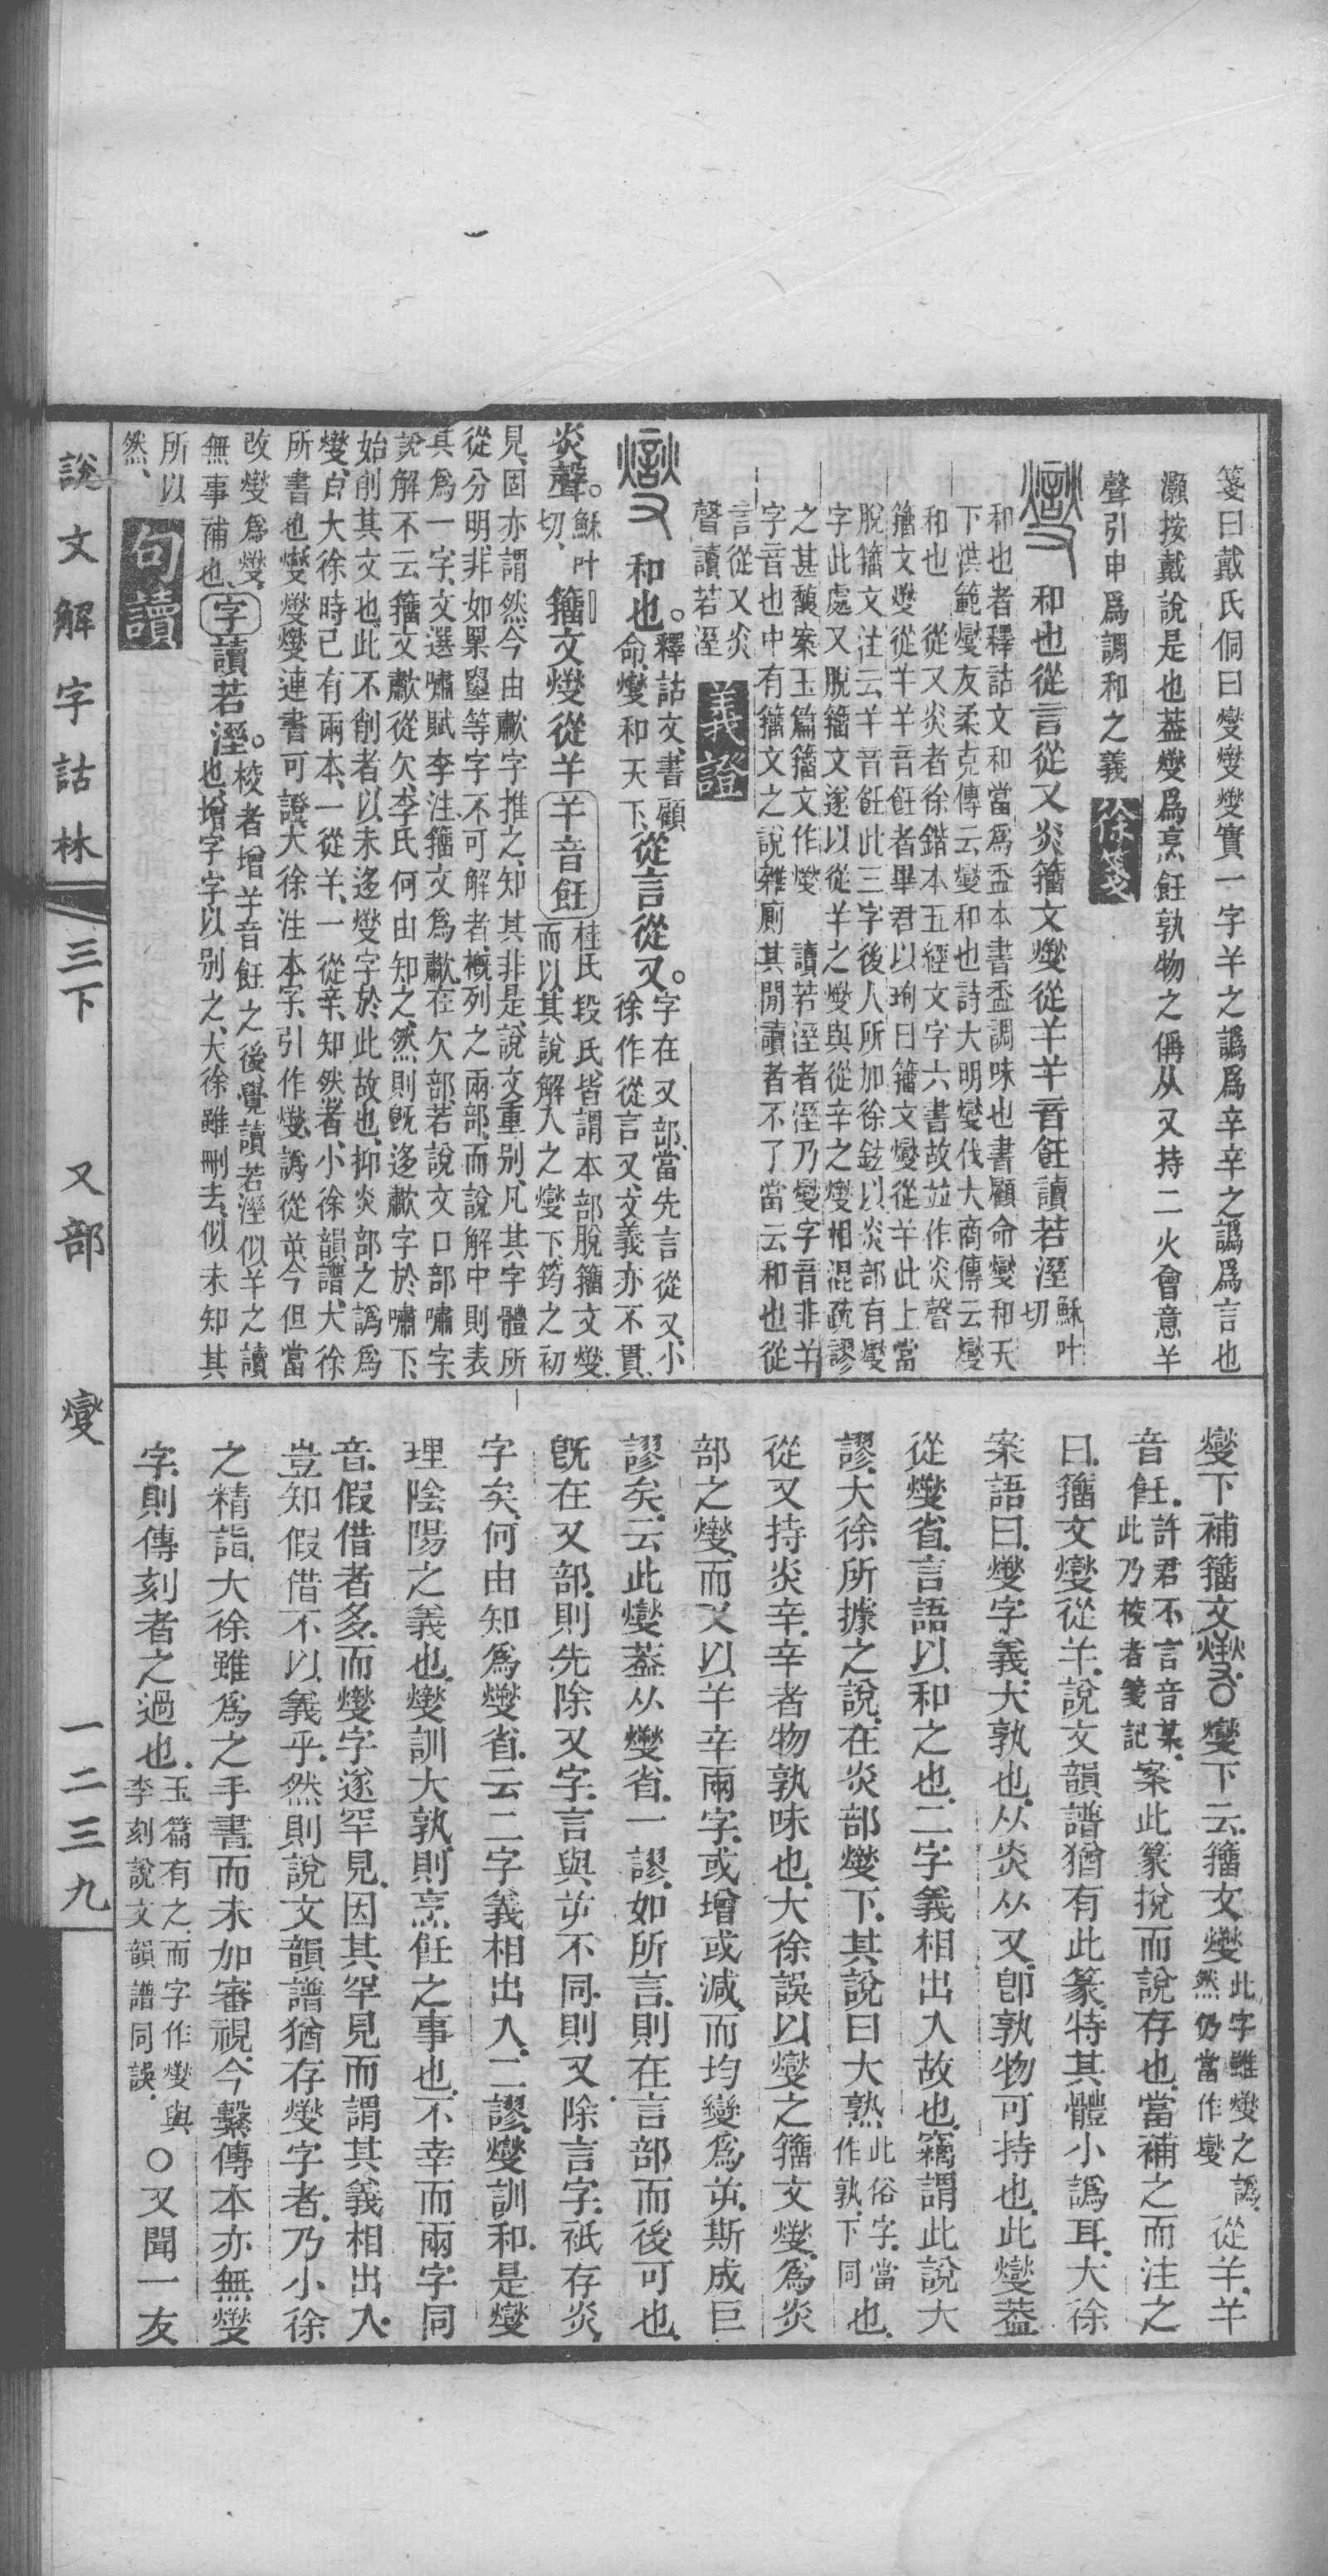 箋曰戴氏侗曰燮燮燮實一字羊之譌爲辛辛之譌爲言也
灝按戴說是也葢燮爲烹飪孰物之偁从又持二火會意羊
聲引申爲調和之義 徐箋
和也從言從又炎籒文燮從羊羊音飪讀若溼 穌叶切
和也者釋詁文和當爲盉本書盉調味也書顧命燮和天
下洪範燮友柔克傳云燮和也詩大明燮伐大商傳云燮
和也 從又炎者徐鍇本五經文字六書故竝作炎聲
籒文燮從羊羊音飪者畢君以珣曰籒文燮從羊此上當
脫籒文注云羊音飪此三字後人所加徐鉉以炎部有燮
字此處又脫籒文遂以從羊之燮與從辛之燮相混疏謬
之甚馥案玉篇籒文作燮 讀若溼者溼乃燮字音非羊
字音也中有籒文之說雜廁其閒讀者不了當云和也從
言從又炎
聲讀若溼 義證
和也。釋詁文、書顧命、燮和天下、從言從又。字在又部、當先言從又、小徐作從言又、文義亦不貫、
炎聲。穌叶切、籒文燮從羊羊音飪 桂氏段氏、皆謂本部脫籒文燮、而以其說解入之燮下、筠之初
見、固亦謂然、今由歗字推之、知其非是、說文重別、凡其字體所
從分明、非如㒸䍃等字不可解者、槪列之兩部、而說解中則表
其爲一字、文選嘯賦李注、籒文爲歗、在欠部、若說文口部嘯字、
說解不云籒文歗從欠、李氏何由知之、然則旣迻歗字於嘯下、
始削其文也、此不削者、以未迻燮字於此故也、抑炎部之譌爲
燮、自大徐時已有兩本、一從羊、一從辛、知然者、小徐韻譜、大徐
所書也、燮燮燮連書可證、大徐注本字、引作燮、譌從䇂、今但當
改燮爲燮、
無事補也、字讀若溼。校者增羊音飪之後、覺讀若溼似羊之讀也、增字字以别之、大徐雖刪去、似未知其
所以
然、 句讀
燮下補籒文○燮下云、籒文燮 此字雖燮之譌、然仍當作燮 從羊、羊
音飪、許君不言音某、此乃校者箋記 案此篆挩而說存也、當補之而注之
曰、籒文燮從羊、說文韻譜猶有此篆、特其體小譌耳、大徐
案語曰、燮字義大孰也、从炎从又、卽孰物可持也、此燮葢
從燮省、言語以和之也、二字義相出入故也、竊謂此說大
謬、大徐所據之說、在炎部燮下、其說曰大熟 此俗字、當作孰、下同 也、
從又持炎辛、辛者物孰味也、大徐誤以燮之籒文燮、爲炎
部之燮、而又以羊辛兩字、或增或減、而均變爲䇂、斯成巨
謬矣、云此燮葢从燮省、一謬、如所言、則在言部而後可也、
旣在又部、則先除又字、言與䇂不同、則又除言字、祇存炎
字矣、何由知爲燮省、云二字義相出入、二謬、燮訓和、是燮
理陰陽之義也、燮訓大孰、則烹飪之事也、不幸而兩字同
音、假借者多、而燮字遂罕見、因其罕見而謂其義相出入、
豈知假借不以義乎、然則說文韻譜猶存燮字者、乃小徐
之精詣、大徐雖爲之手書、而未加審視、今繫傳本亦無燮
字、則傳刻者之過也、玉篇有之、而字作燮、與李刻說文韻譜同誤、 ○又聞一友
說文解字詁林 三下 又部 燮 一二三九